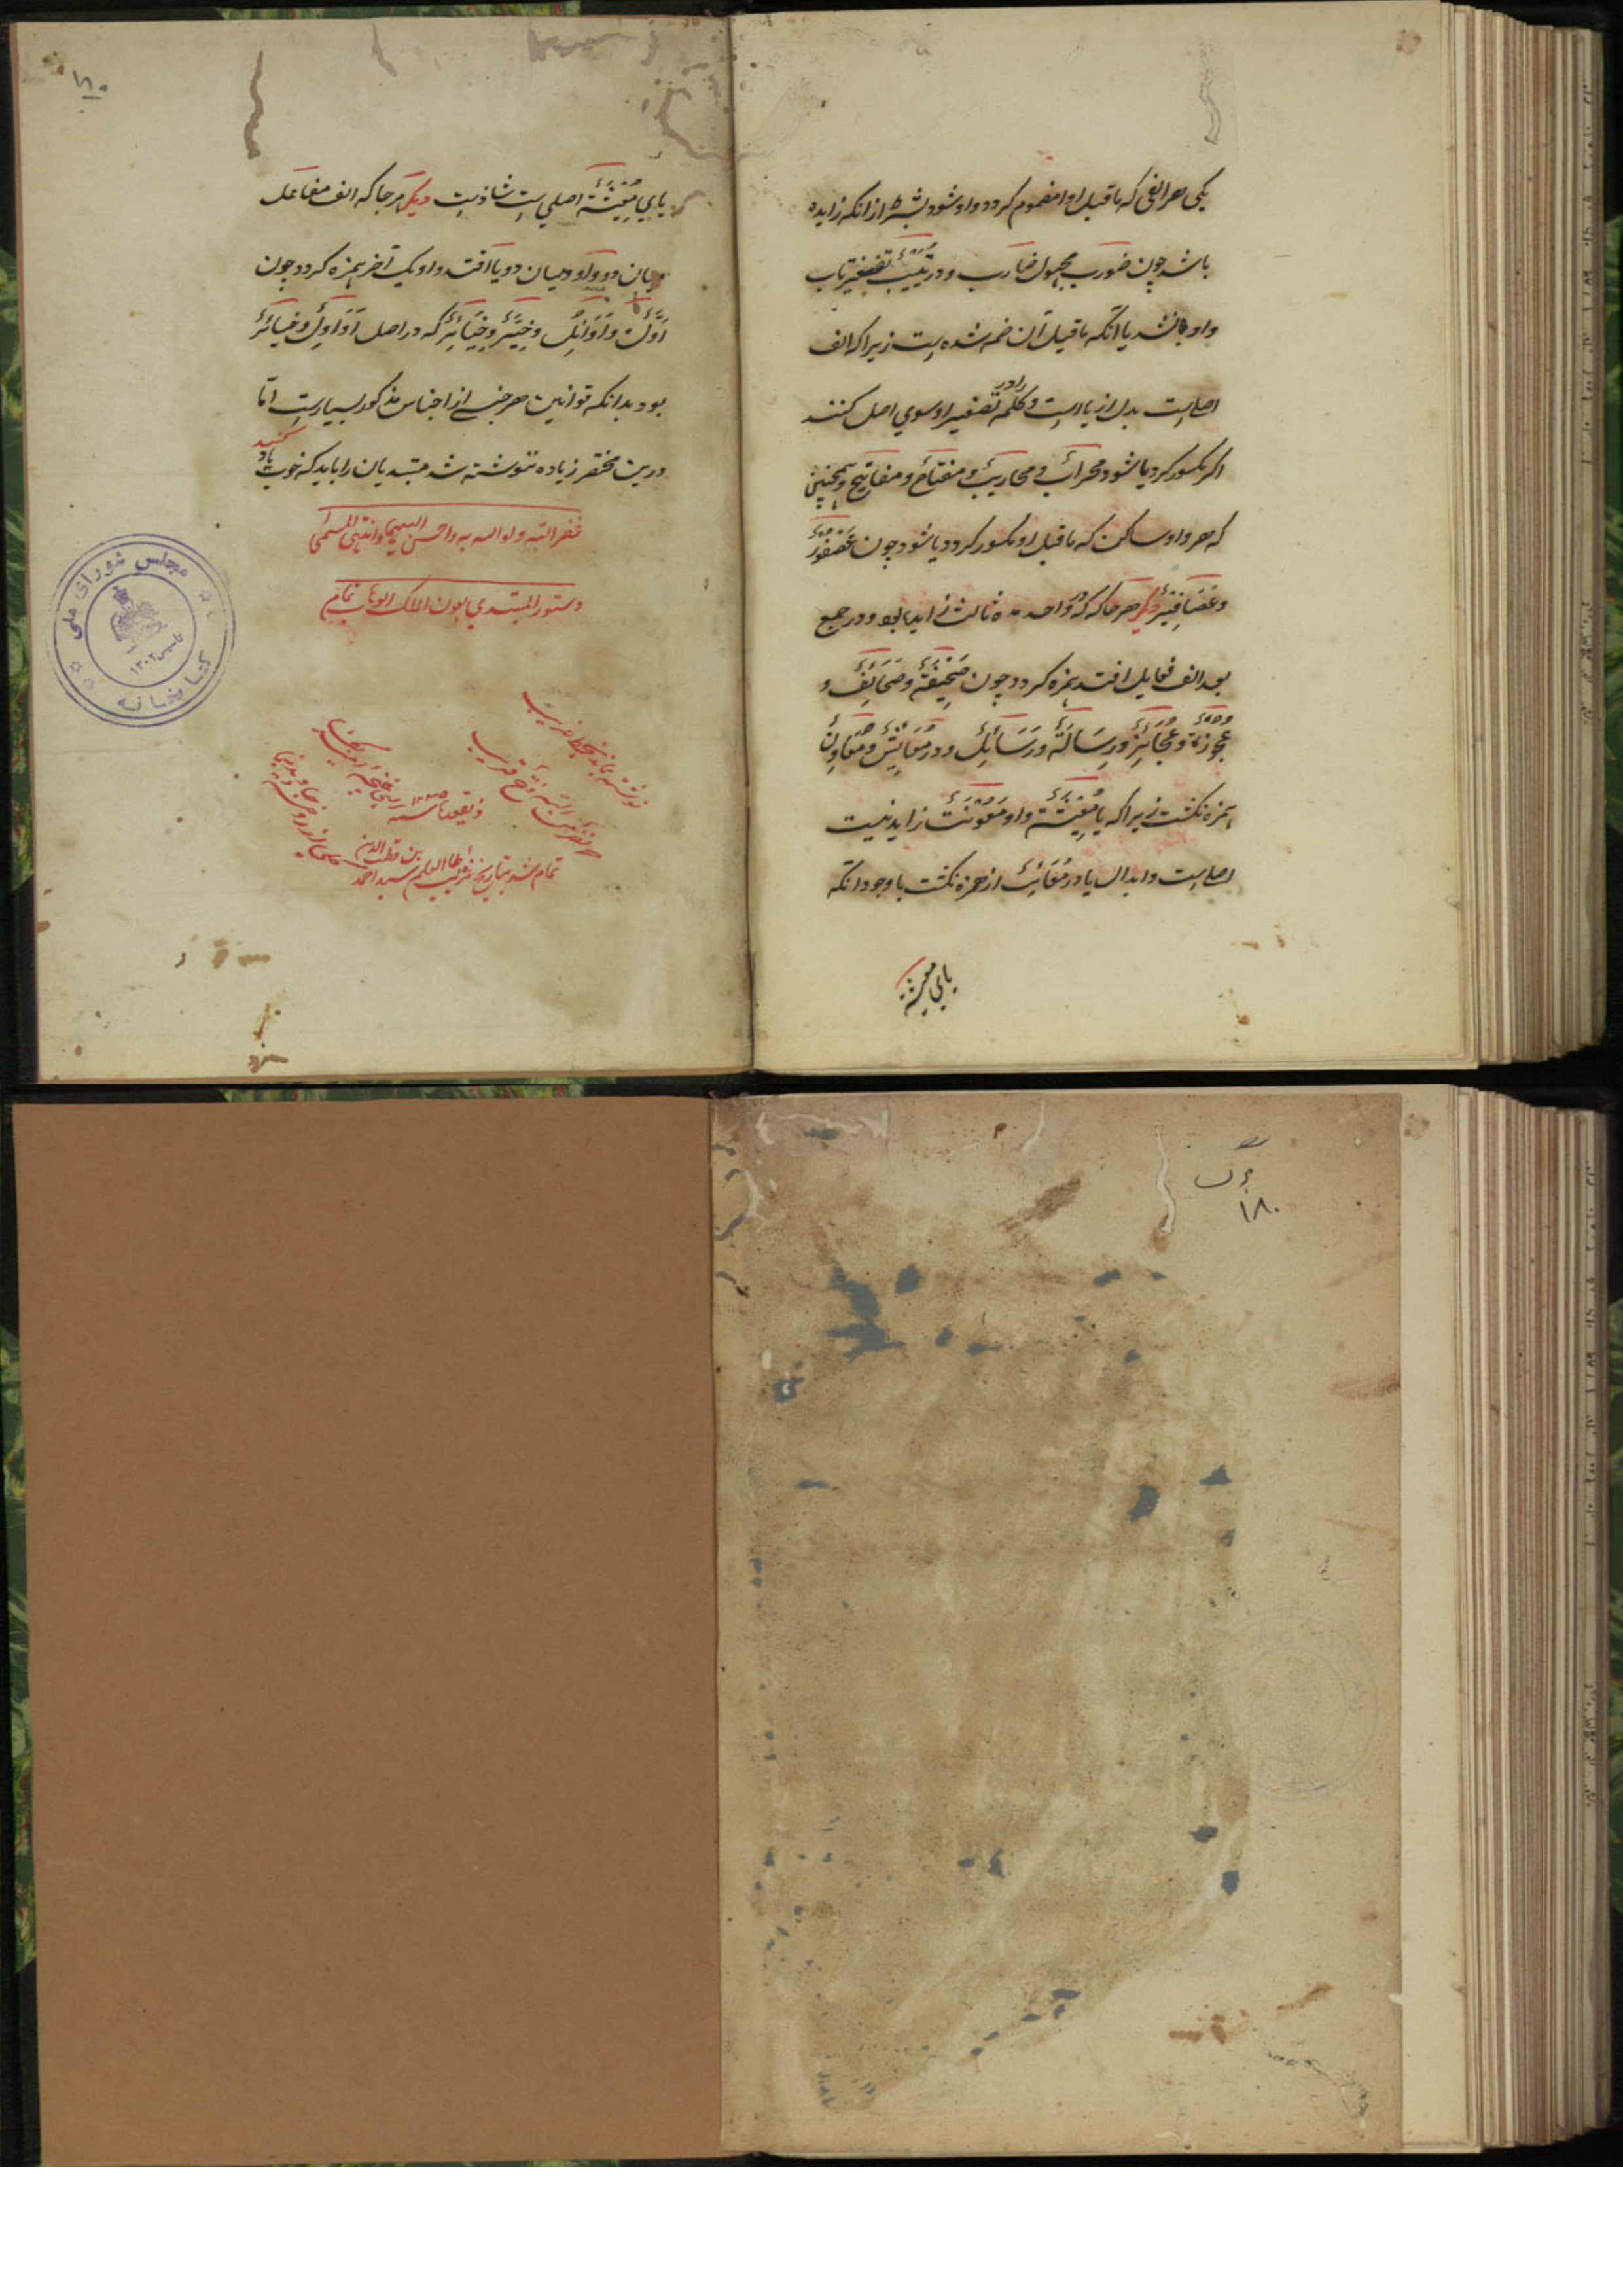 یکی هر الفی که ماقبل او را مضموم گردد واو شود بشرط ازانکه زایده
باشد چون ضورب مجهول ضارب و در تییب تصغیر ناب
واو نشد یا آنکه ماقبل آن ضمه شده است زیرا که الف
اصلست بدل از یا است و کلمه را در تصغیر او سوی اصل کنند
اگر مکسور گردد یا شود محراب و محاریب و مفتاح و مفاتیح و همچنین
که هر واو ساکن که ماقبل او مکسور گردد یا شود چون عصفور
و عصافیر دیگر هر جا که در واحد مده ثالث زاید بود و در جمع
بعد الف فعایل افتد همزه گردد چون صحیفة و صحائف و
عجوزة و عجائز و رسالة و رسائل و در معایش و معاون
همزه نگشت زیرا که یا معیشة و واو معونت زاید نیست
اصلیست و ابدال یا در از همزه نگشت با وجود انکه
یای معیشة
۱۸۰
یای معیشة اصلی است شاذ است دیگر هر جا که الف مفاعل
میان دو واو و میان دو یا افتد واو یک آخر همزه گردد چون
اول و اوائل و خیر و خیائر که در اصل اواول و خیایر
بود بدانکه قوانین هر جنسی از اجناس مذکور بسیارست اما
درین مختصر زیاده ننوشته شد مبتدیان را باید که خوب یاد
کنند
غفر الله و لوالدیه و احسن الیهما و انتهی المسمی
دستور المبتدی بعون الملک الوهاب تمام
نوشته بماند بخط غریب
نصر من الله و فتح قریب
تمام شد بتاریخ سید احمد
بن قطب الدین
مجلس شورای ملی
کتابخانه
تاسیس ۱۳۰۲
۱۸۰